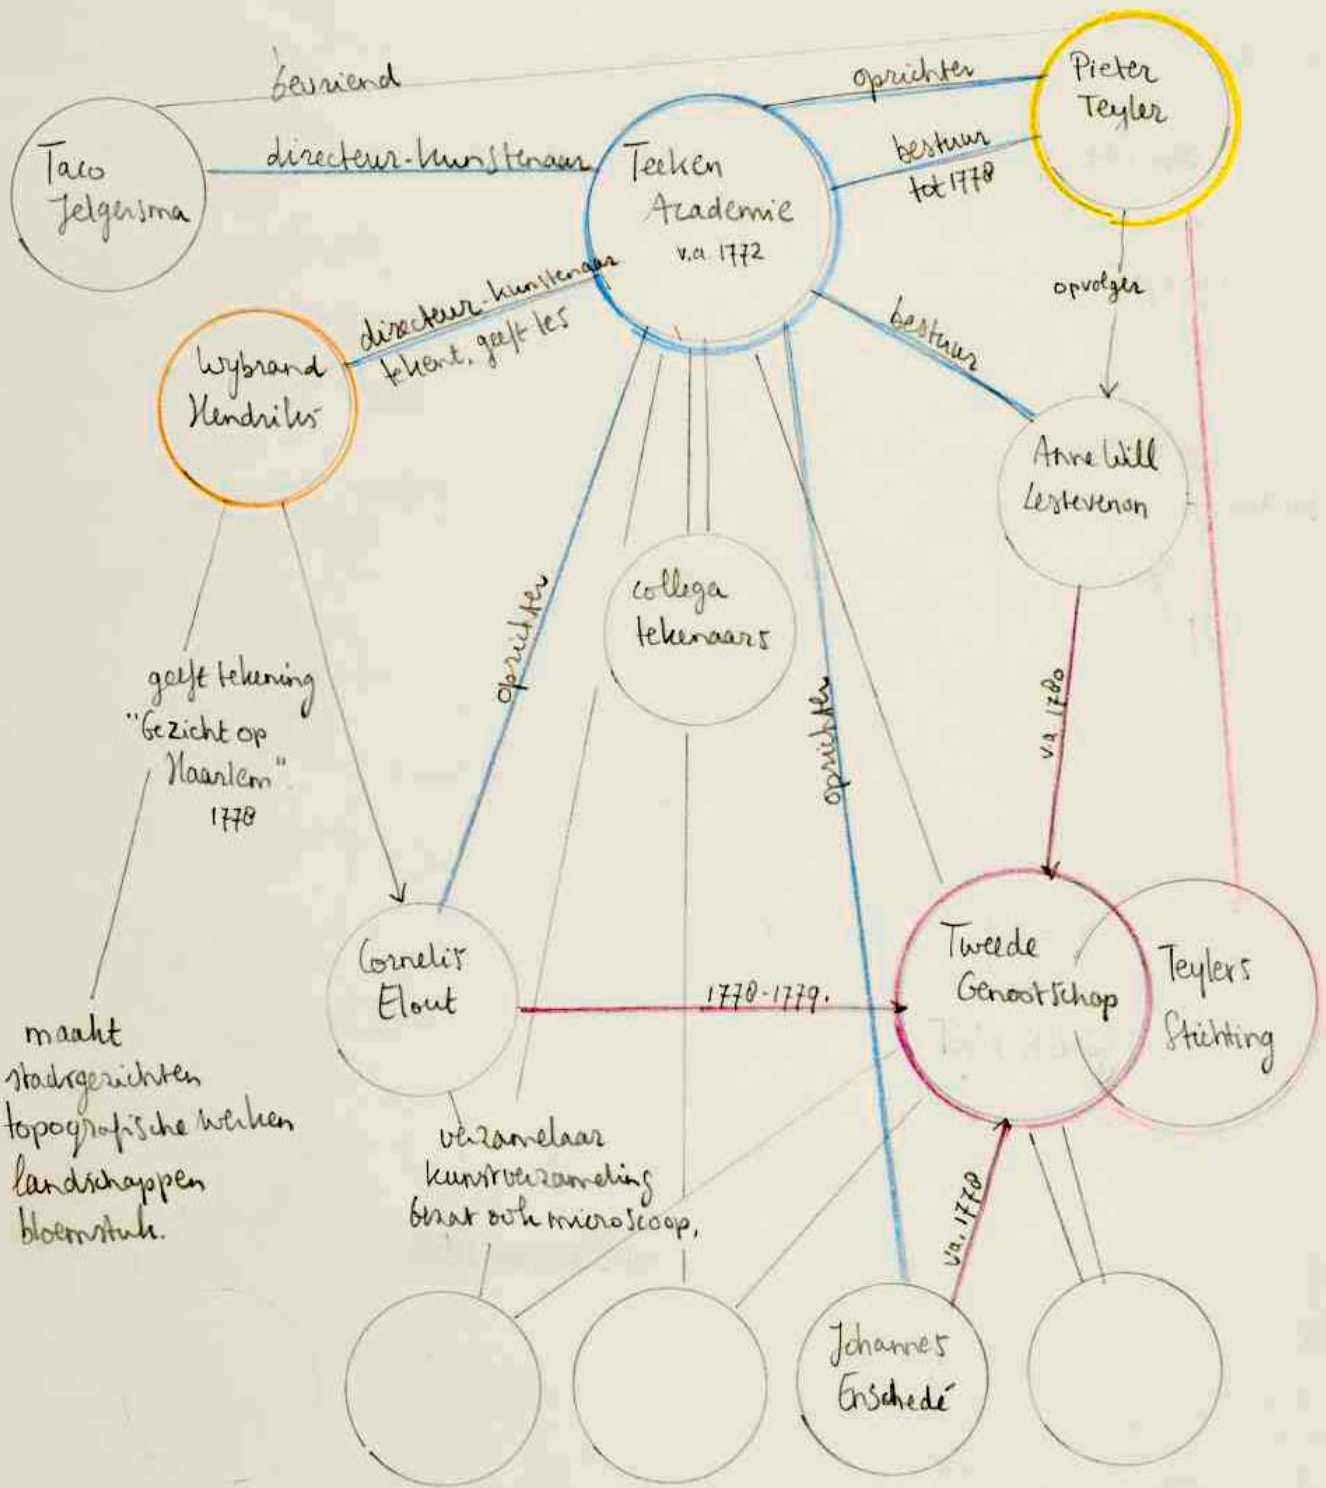 bevriend
oprichter
Pieter
Teyler
Taco
Jelgersma
directeur-kunstenaar
Teeken
Academie
v.a. 1772
bestuur
tot 1778
opvolger
directeur-kunstenaar
tekent, geeft les
Wybrand
Hendriks
bestuur
Anne Will
Lestevenon
oprichter
collega
tekenaars
oprichter
v.a. 1780
geeft tekening
"Gezicht op
Haarlem"
1778
Cornelis
Elout
1778-1779.
Tweede
Genootschap
Teylers
Stichting
maakt
stadsgezichten
topografische werken
landschappen
bloemstuk.
verzamelaar
kunstverzameling
bezat ook microscoop,
v.a. 1778
Johannes
Enschedé